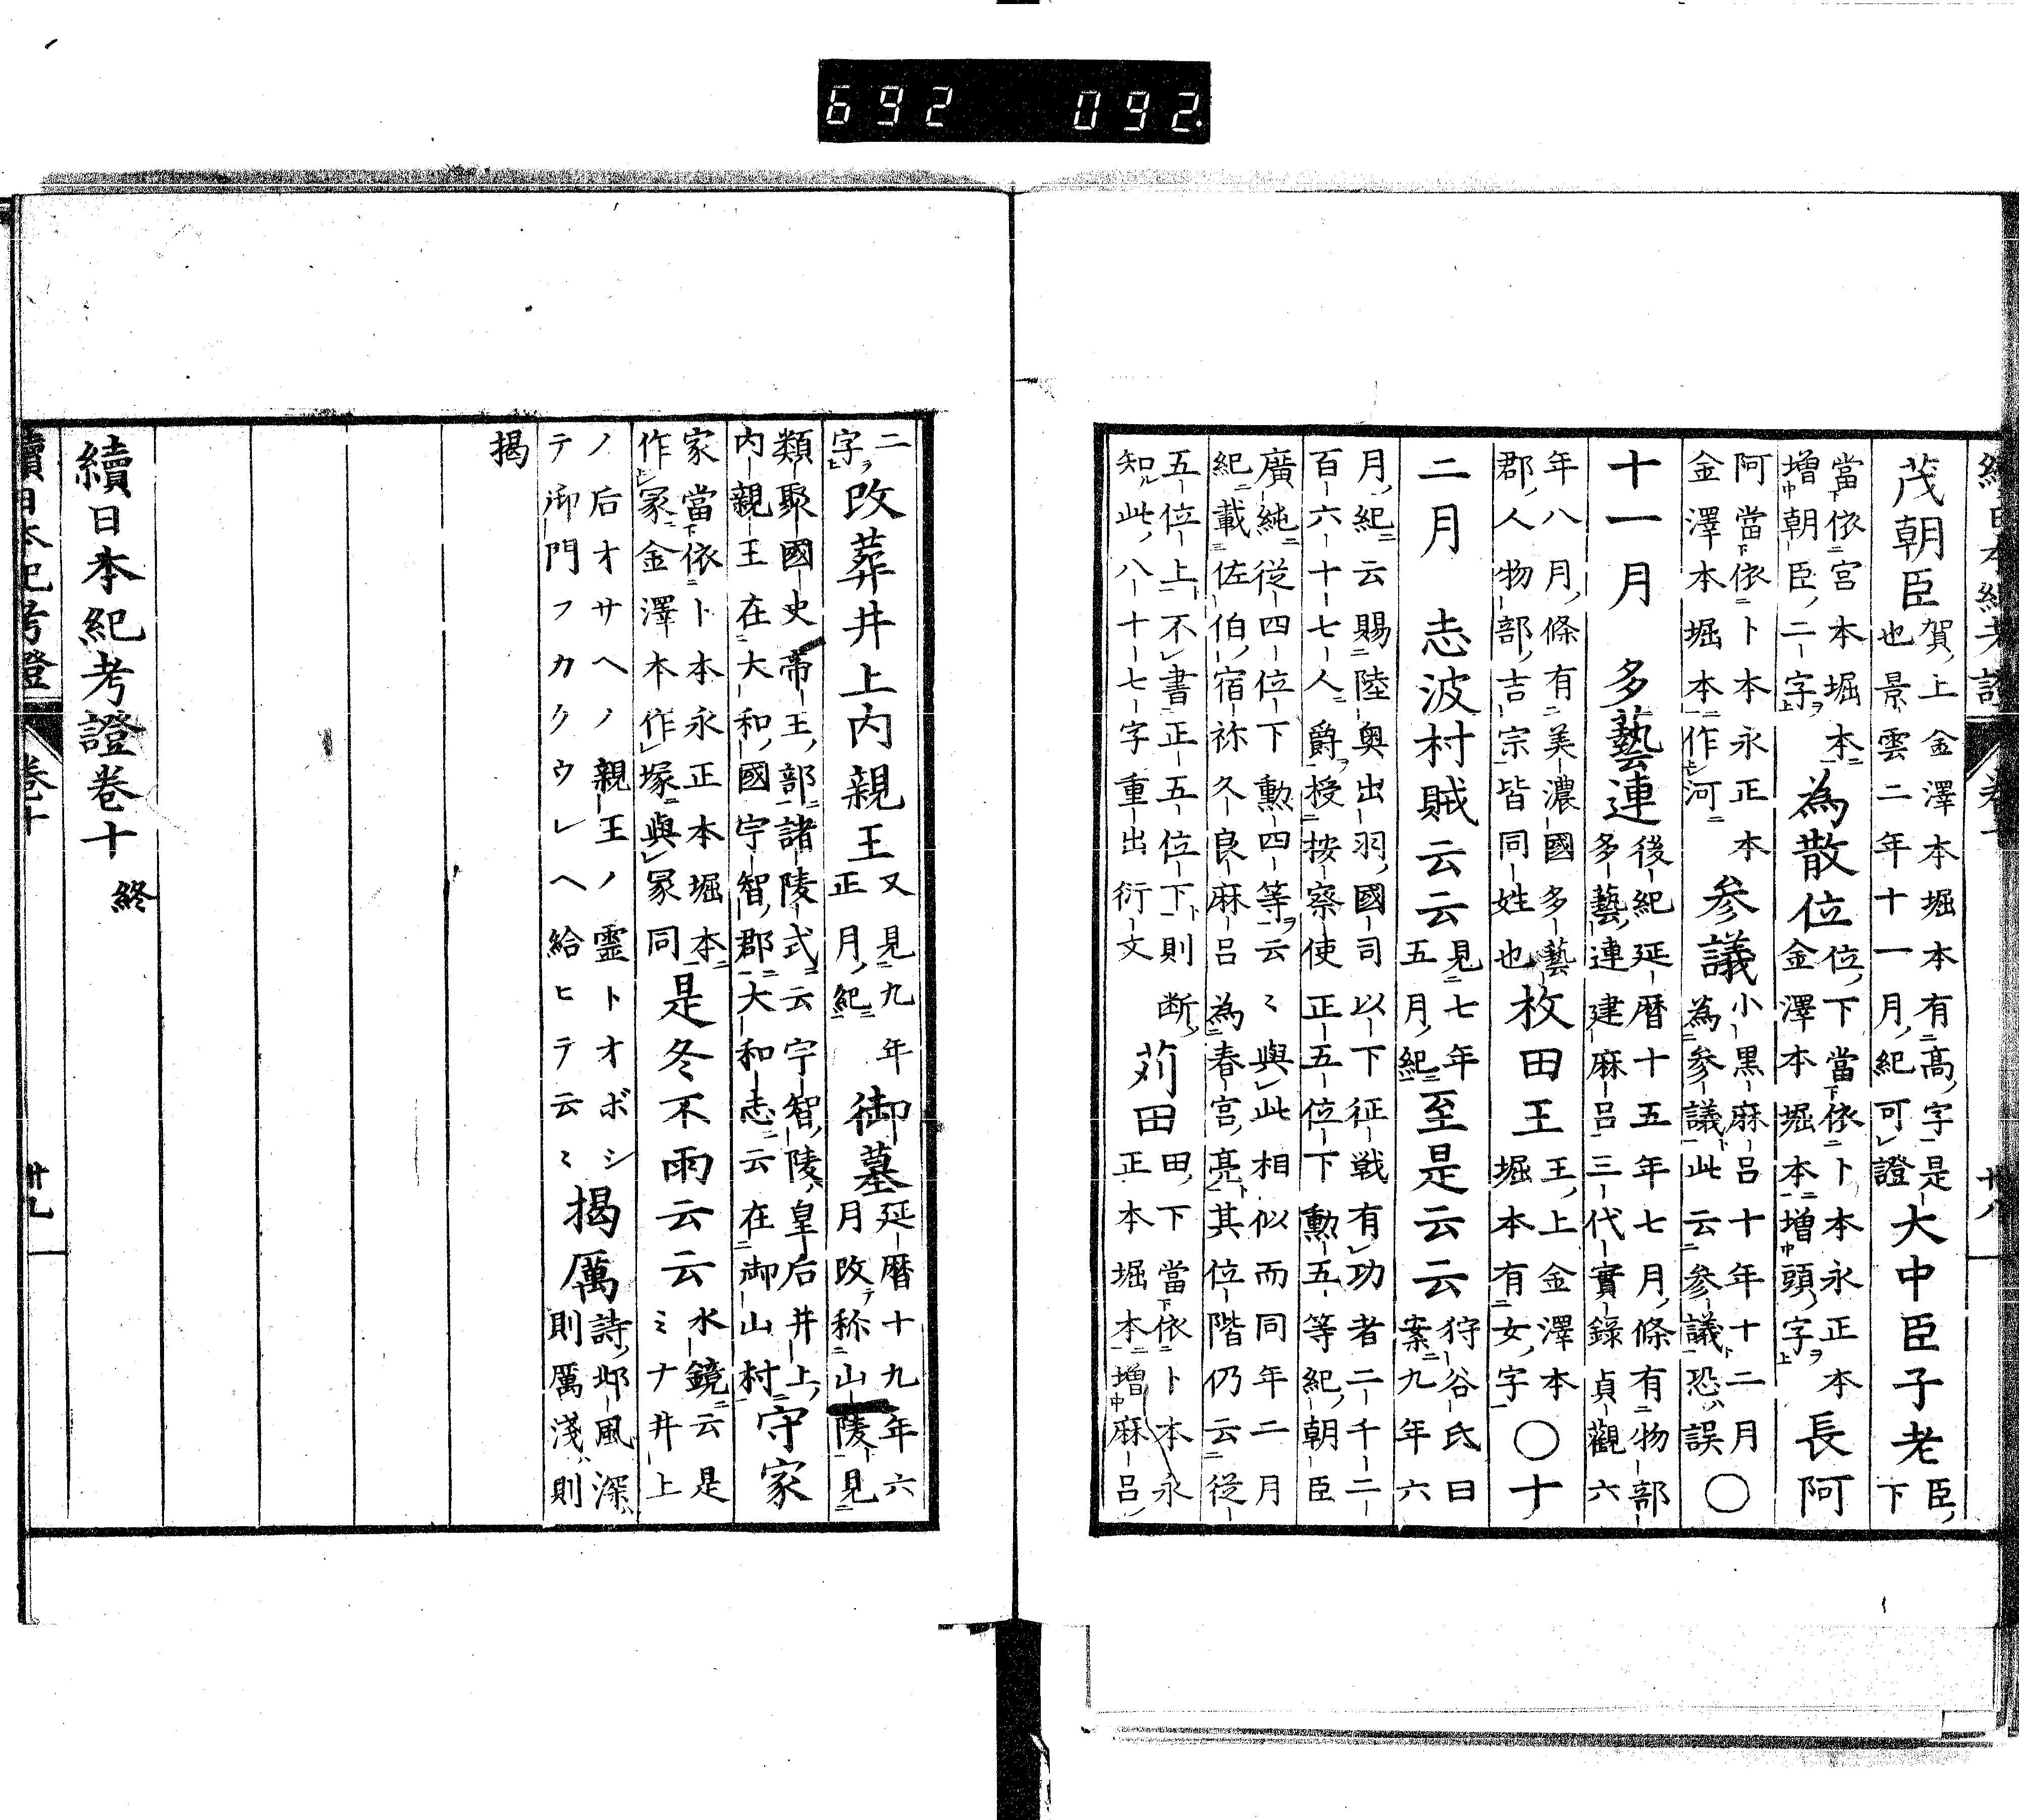 692 092
續日本紀考證 卷十 卅八
茂朝臣賀上金澤本堀本有高字是也景雲二年十一月紀可證大中臣子老臣下
當依宮本堀本增朝臣二字為散位位下當依卜本永正本金澤本堀本增頭字長阿
阿當依卜本永正本金澤本堀本作河参議小黑麻呂十年十二月為参議此云参議恐誤〇
十一月 多藝連後紀延暦十五年七月條有物部多藝連建麻呂三代實錄貞觀六
年八月條有美濃國多藝郡人物部吉宗皆同姓也枚田王王上金澤本堀本有女字〇十
二月 志波村賊云云見七年五月紀至是云云狩谷氏曰案九年六
月紀云賜陸奥出羽國司以下征戦有功者二千二百六十七人爵授按察使正五位下勳五等紀朝臣
廣純從四位下勳四等云〻與此相似而同年二月紀載佐伯宿祢久良麻呂為春宮亮其位階仍云從
五位上不書正五位下則知此八十七字重出衍文断苅田田下當依卜本永正本堀本增麻呂
二字改葬井上内親王又見九年正月紀御墓延暦十九年六月改称山陵見
類聚國史帝王部諸陵式云宇智陵皇后井上内親王在大和國宇智郡大和志云在御山村守家
家當依卜本永正本堀本作冢金澤本作塚與冢同是冬不雨云云水鏡云是ミナ井上
ノ后オサヘノ親王ノ霊トオボシテ御門フカクウレヘ給ヒテ云〻揭厲詩邶風深則厲淺則
揭
續日本紀考證卷十 終
續日本紀考證 卷十 卅九